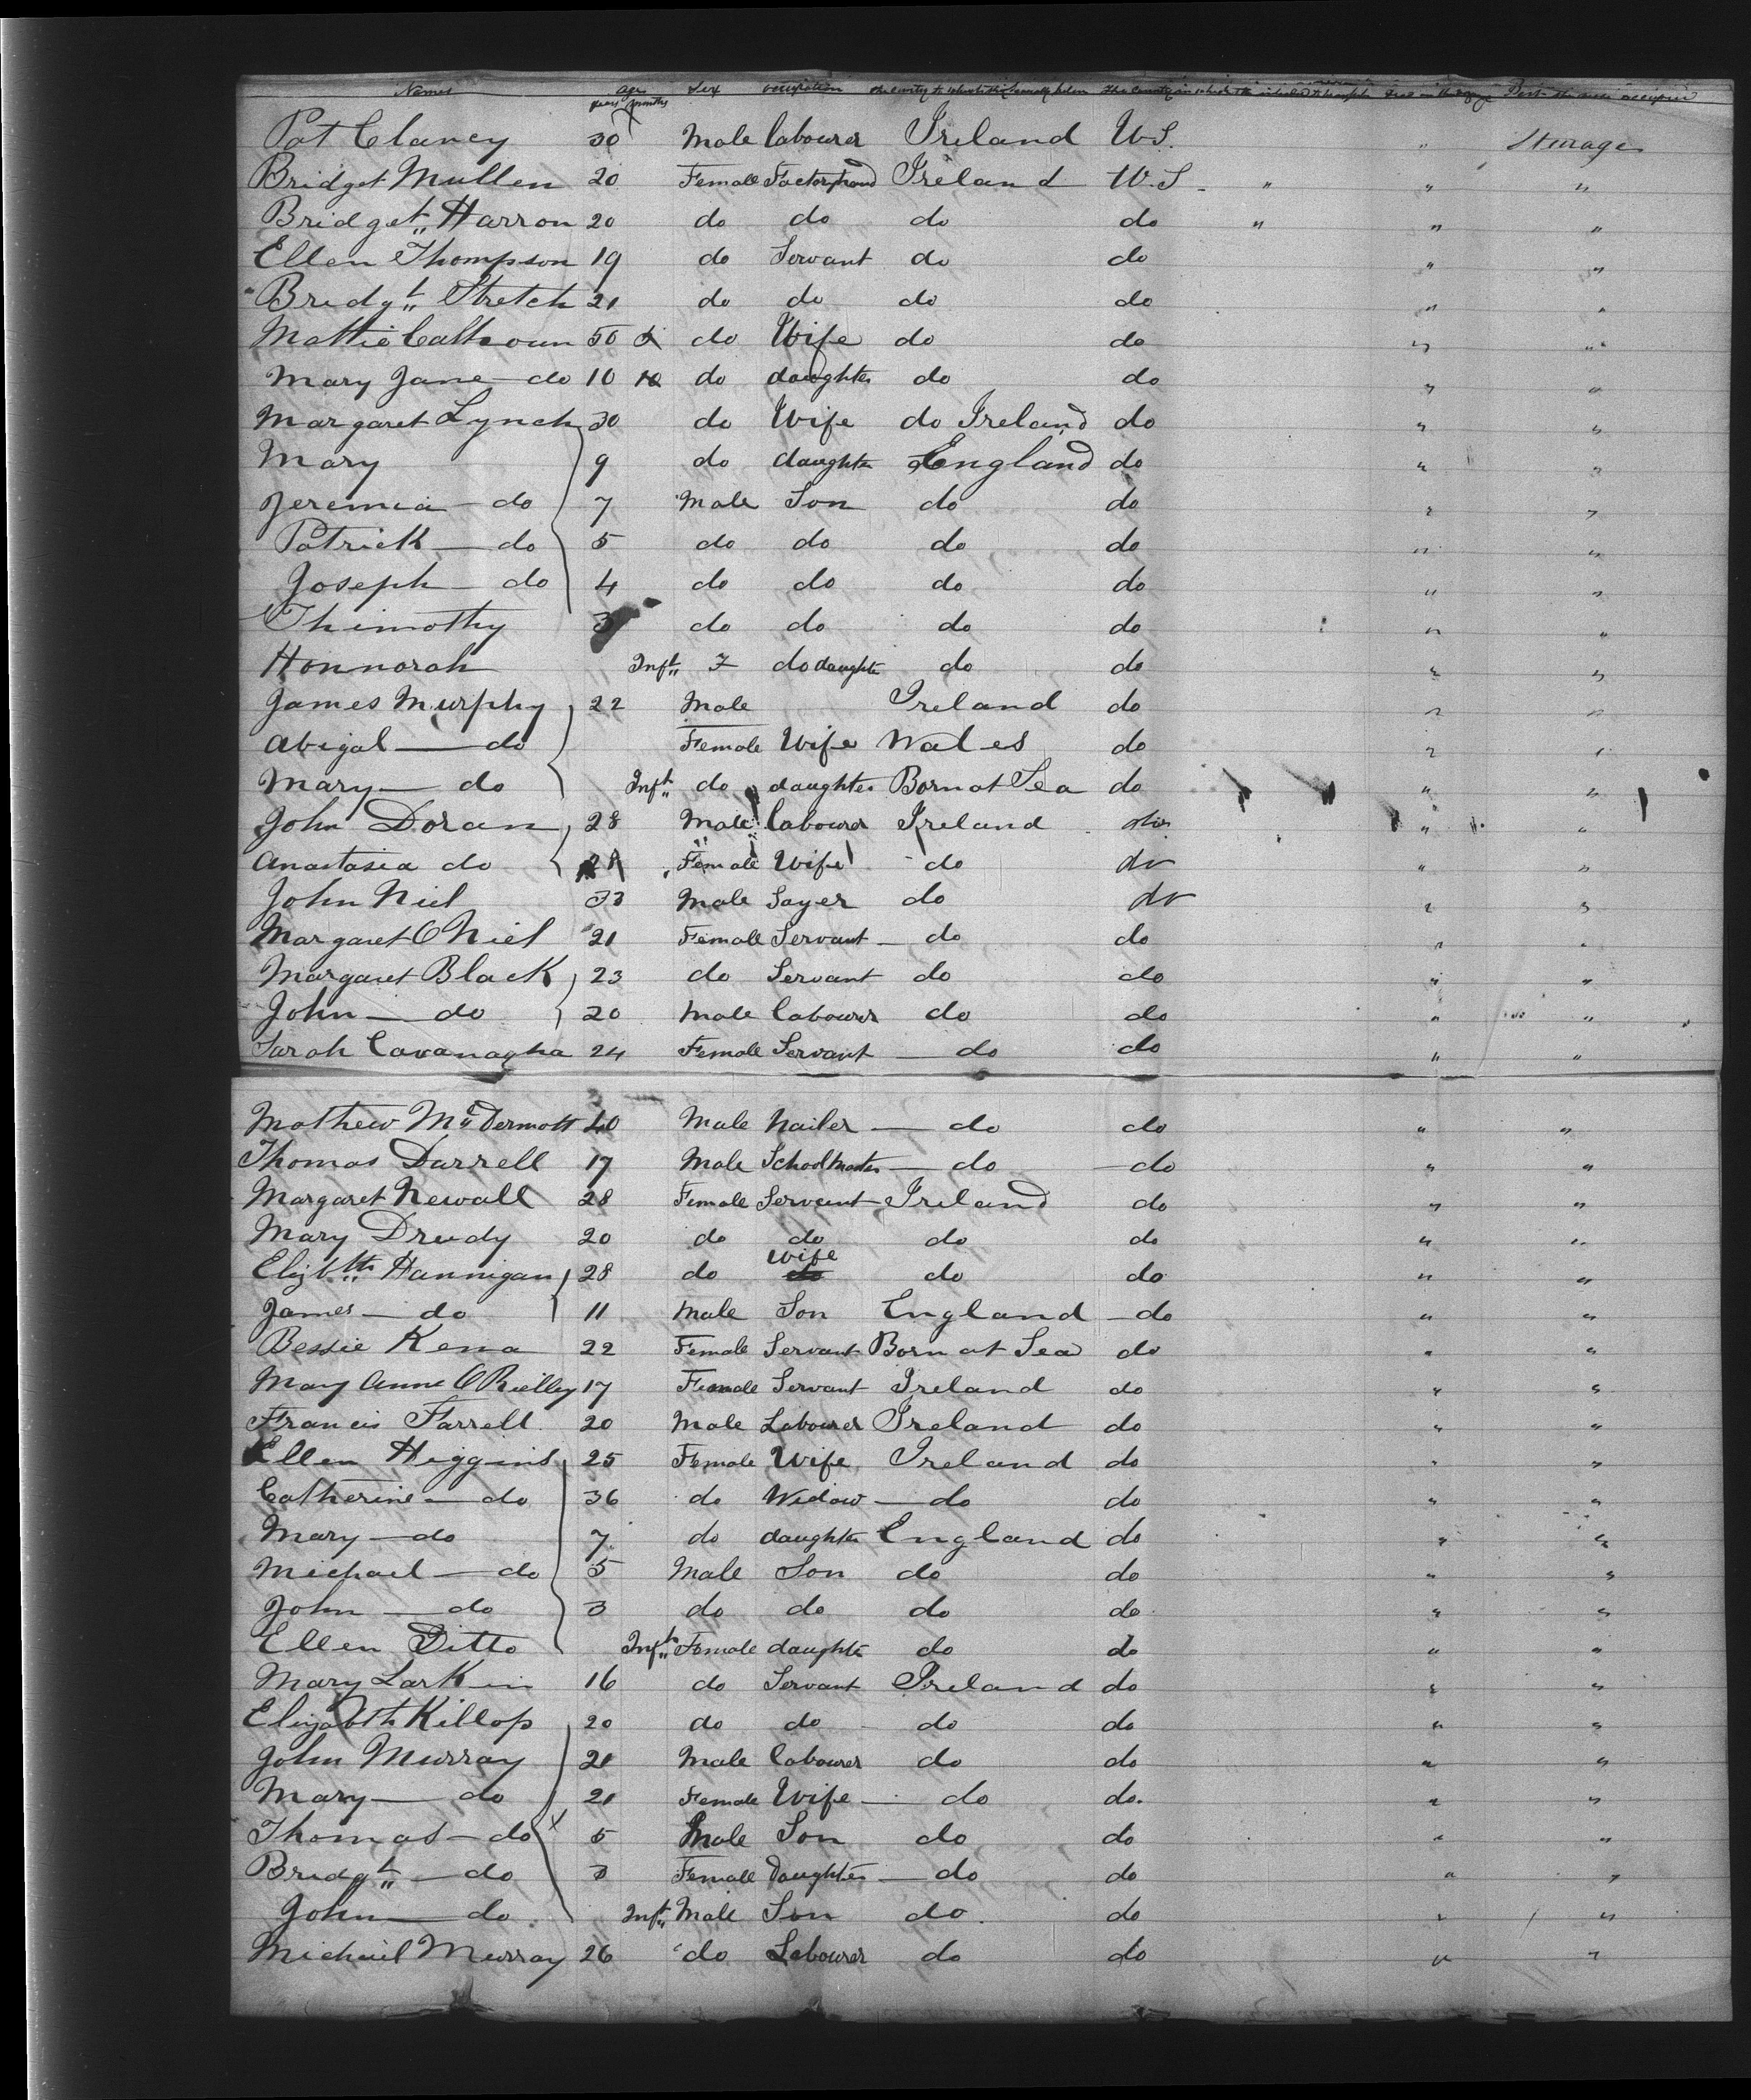 Names Age Sex Occupation
years months
Pat Clancy 30 Male labourer Ireland U.S. " Sturage
Bridget Mullen 20 Female Factory hand Ireland U.S. " " "
Bridget Harron 20 do do do do " " "
Ellen Thompson 19 do Servant do do " "
Bridgt Stretch 21 do do do do " "
Mattie Calhoun 50 do Wife do do " "
Mary Jane do 10 do daughter do do " "
Margaret Lynch 30 do Wife do Ireland do " "
Mary 9 do daughter England do " "
Jeremia do 7 Male Son do do " "
Patrick do 5 do do do do " "
Joseph do 4 do do do do " "
Thimothy 3 do do do do " "
Honnorah Inft F do daughter do do " "
James Murphy 22 Male Ireland do " "
Abigal do Female Wife Wales do " "
Mary do Inft do daughter Born at Sea do " "
John Doran 28 Male labourer Ireland do " "
Anastasia do 28 Female Wife do do " "
John Niel 33 Male Sayer do do " "
Margaret O Niel 21 Female Servant do do " "
Margaret Black 23 do Servant do do " "
John do 20 Male labourer do do " "
Sarah Cavanagha 24 Female Servant do do " "
Mathew McDermott 40 Male Nailer do do " "
Thomas Darrell 17 Male School Master do do " "
Margaret Newall 28 Female Servant Ireland do " "
Mary Drudy 20 do do do do " "
Elizbth Hannigan 28 do Wife do do " "
James do 11 Male Son England do " "
Bessie Kena 22 Female Servant Born at Sea do " "
Mary Anne O Rielley 17 Female Servant Ireland do " "
Francis Farrell 20 Male Labourer Ireland do " "
Ellen Higgins 25 Female Wife Ireland do " "
Catherine do 36 do Widow do do " "
Mary do 7 do daughter England do " "
Michael do 5 Male Son do do " "
John do 3 do do do do " "
Ellen Ditto Inft Female daughter do do " "
Mary Larkin 16 do Servant Ireland do " "
Elizabth Killop 20 do do do do " "
John Murray 21 Male labourer do do " "
Mary do 21 Female Wife do do. " "
Thomas do 5 Male Son do do " "
Bridgt do 3 Female Daughter do do " "
John do Inft Male Son do do " "
Michail Murray 26 do Labourer do do " "